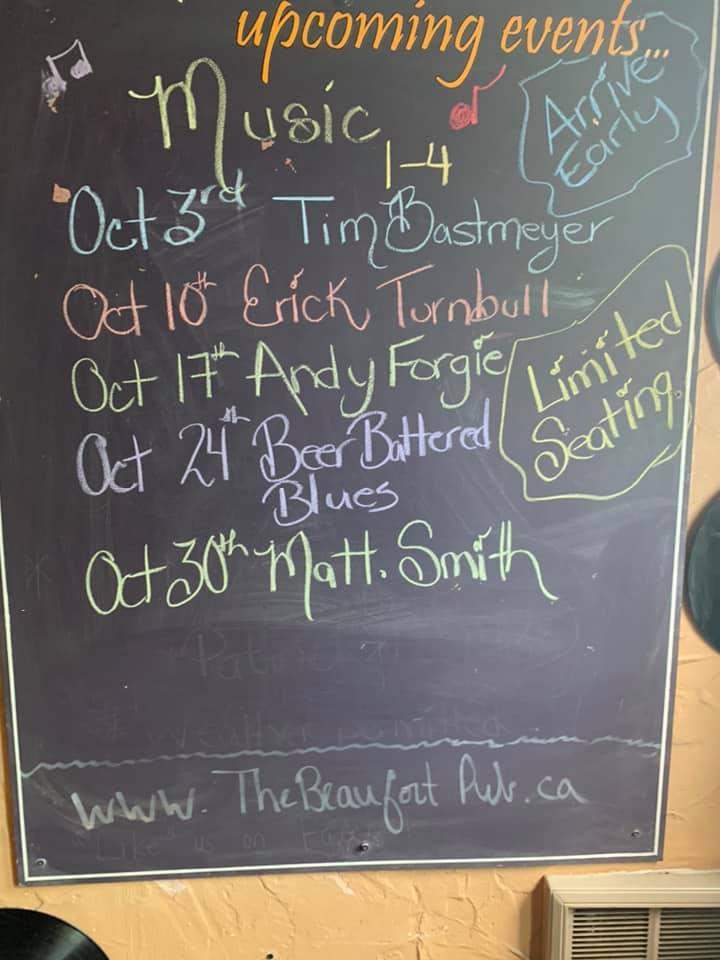 upcoming events...
Music
1-4
Arrive
Early
Oct 3rd Tim Bastmeyer
Oct 10th Erick Turnbull
Oct 17th Andy Forgie
Limited
Seating.
Oct 24th Beer Battered
Blues
Oct 30th Matt. Smith
www. TheBeaufort Pub.ca
"Like" us on